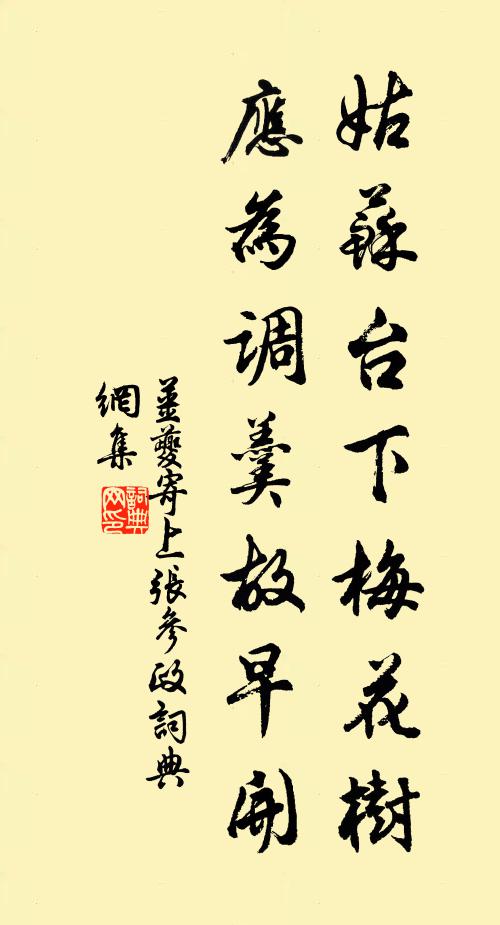 姑蘇台下梅花樹
應為調羹故早開
姜夔寄上張參政詞典
網集
詞典网印